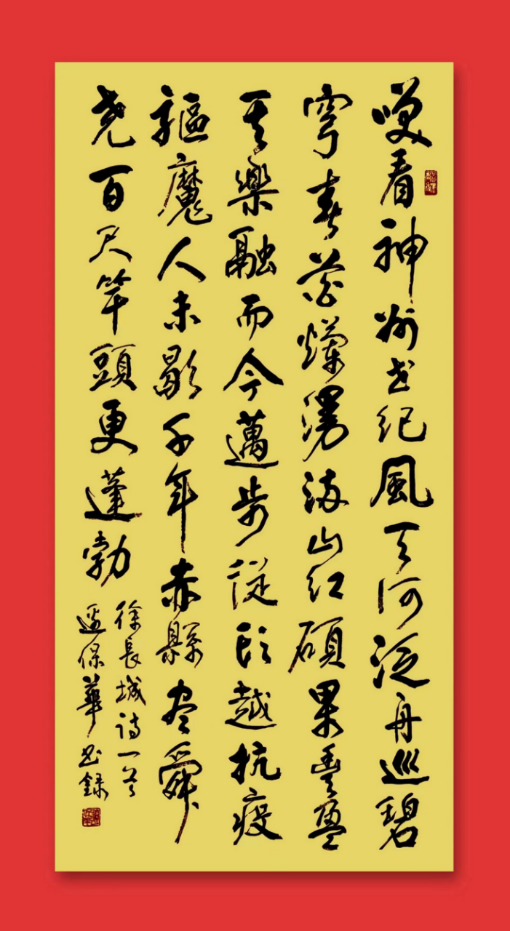 咲看神州世紀風天河泛舟巡碧
穹春花爛漫海山紅碩果豐盈
其樂融而今邁步從頭越抗疫
驅魔人未歇千年赤縣尽舜
堯百尺竿頭更蓬勃
徐長城詩一首
保華書録